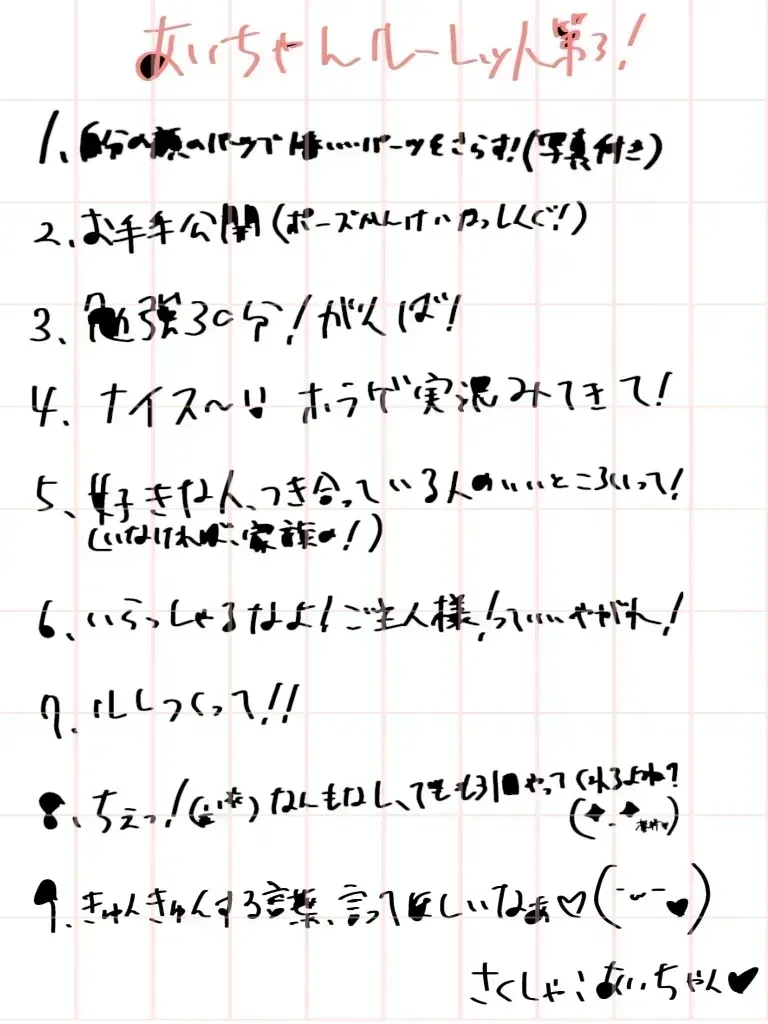 あいちゃんルーレット第3!
1、自分の顔のパーツで1番いいパーツをさらす!(写真付き)
2、お手手公開(ポーズかんけいなっしんぐ!)
3、勉強30分!がんば!
4、ナイス〜!! ホラゲ実況みてきて!
5、好きな人、つき合っている人のいいところいって!
(いなければ、家族の!)
6、いらっしゃるなよ!ご主人様!っていいやがれ!
7、ルレつくって!!
8、ちぇっ! なんもなし、でももう1回やってくれるよね?
9、きゅんきゅんする言葉、言ってほしいなぁ♡(˘ᵕ˘♥)
さくしゃ:あいちゃん♥